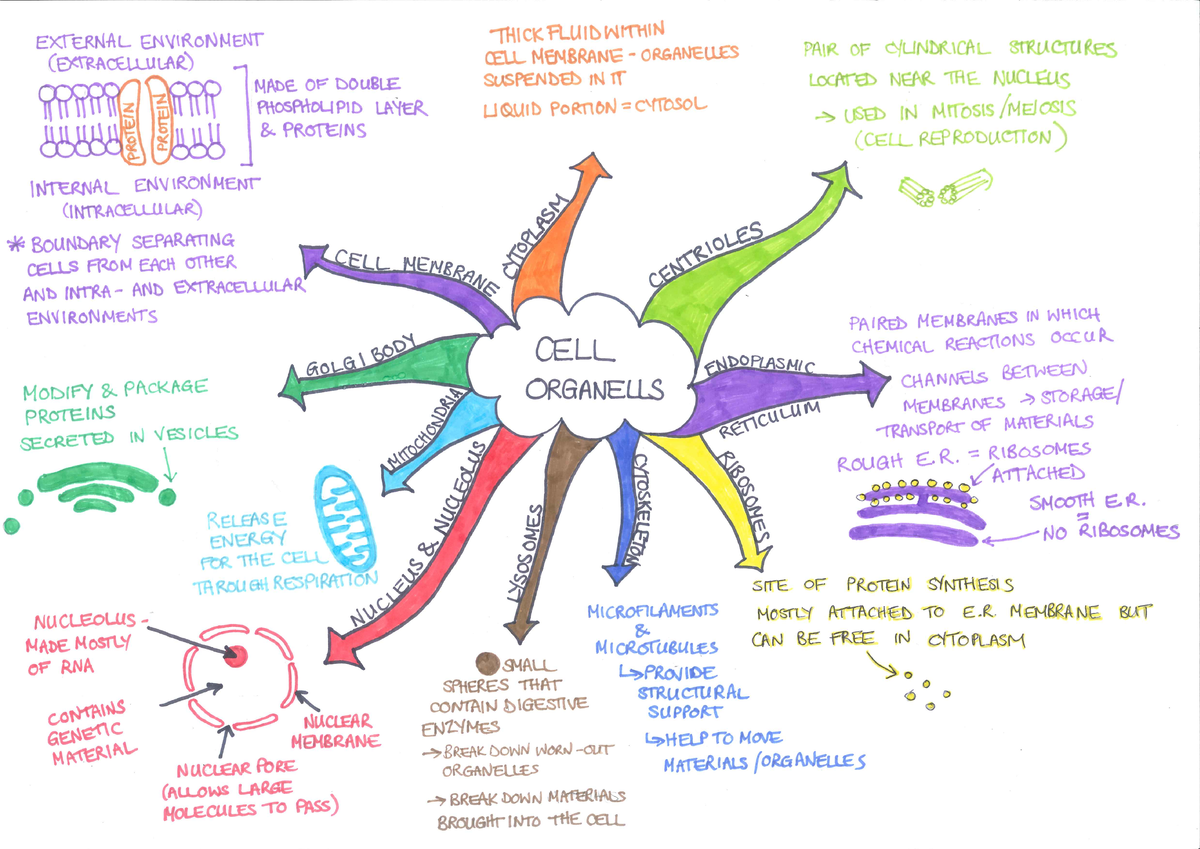 CELL
ORGANELLS
CELL MEMBRANE
EXTERNAL ENVIRONMENT
(EXTRACELLULAR)
PROTEIN
PROTEIN
MADE OF DOUBLE
PHOSPHOLIPID LAYER
& PROTEINS
INTERNAL ENVIRONMENT
(INTRACELLULAR)
* BOUNDARY SEPARATING
CELLS FROM EACH OTHER
AND INTRA- AND EXTRACELLULAR
ENVIRONMENTS
CYTOPLASM
THICK FLUID WITHIN
CELL MEMBRANE - ORGANELLES
SUSPENDED IN IT
LIQUID PORTION = CYTOSOL
CENTRIOLES
PAIR OF CYLINDRICAL STRUCTURES
LOCATED NEAR THE NUCLEUS
→ USED IN MITOSIS/MEIOSIS
(CELL REPRODUCTION)
ENDOPLASMIC
RETICULUM
PAIRED MEMBRANES IN WHICH
CHEMICAL REACTIONS OCCUR
CHANNELS BETWEEN
MEMBRANES → STORAGE/
TRANSPORT OF MATERIALS
ROUGH E.R. = RIBOSOMES
ATTACHED
SMOOTH E.R.
=
NO RIBOSOMES
RIBOSOMES
SITE OF PROTEIN SYNTHESIS
MOSTLY ATTACHED TO E.R. MEMBRANE BUT
CAN BE FREE IN CYTOPLASM
CYTOSKELETON
MICROFILAMENTS
&
MICROTUBULES
↳ PROVIDE
STRUCTURAL
SUPPORT
↳ HELP TO MOVE
MATERIALS/ORGANELLES
LYSOSOMES
SMALL
SPHERES THAT
CONTAIN DIGESTIVE
ENZYMES
→ BREAK DOWN WORN-OUT
ORGANELLES
→ BREAK DOWN MATERIALS
BROUGHT INTO THE CELL
NUCLEUS & NUCLEOLUS
NUCLEOLUS -
MADE MOSTLY
OF RNA
CONTAINS
GENETIC
MATERIAL
NUCLEAR
MEMBRANE
NUCLEAR PORE
(ALLOWS LARGE
MOLECULES TO PASS)
MITOCHONDRIA
RELEASE
ENERGY
FOR THE CELL
THROUGH RESPIRATION
GOLGI BODY
MODIFY & PACKAGE
PROTEINS
SECRETED IN VESICLES